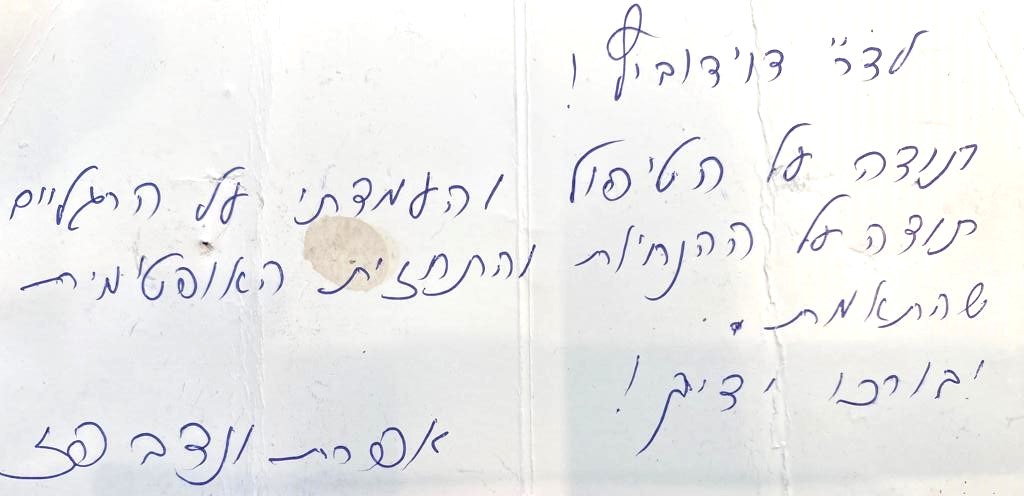 לדר' דוידוביץ !
תודה על הטיפול והעמדתי על הרגליים
תודה על ההנחיות והתחזית האופטימית
שהתאמת.
יבורכו ידיך !
אפרת ונדב פז